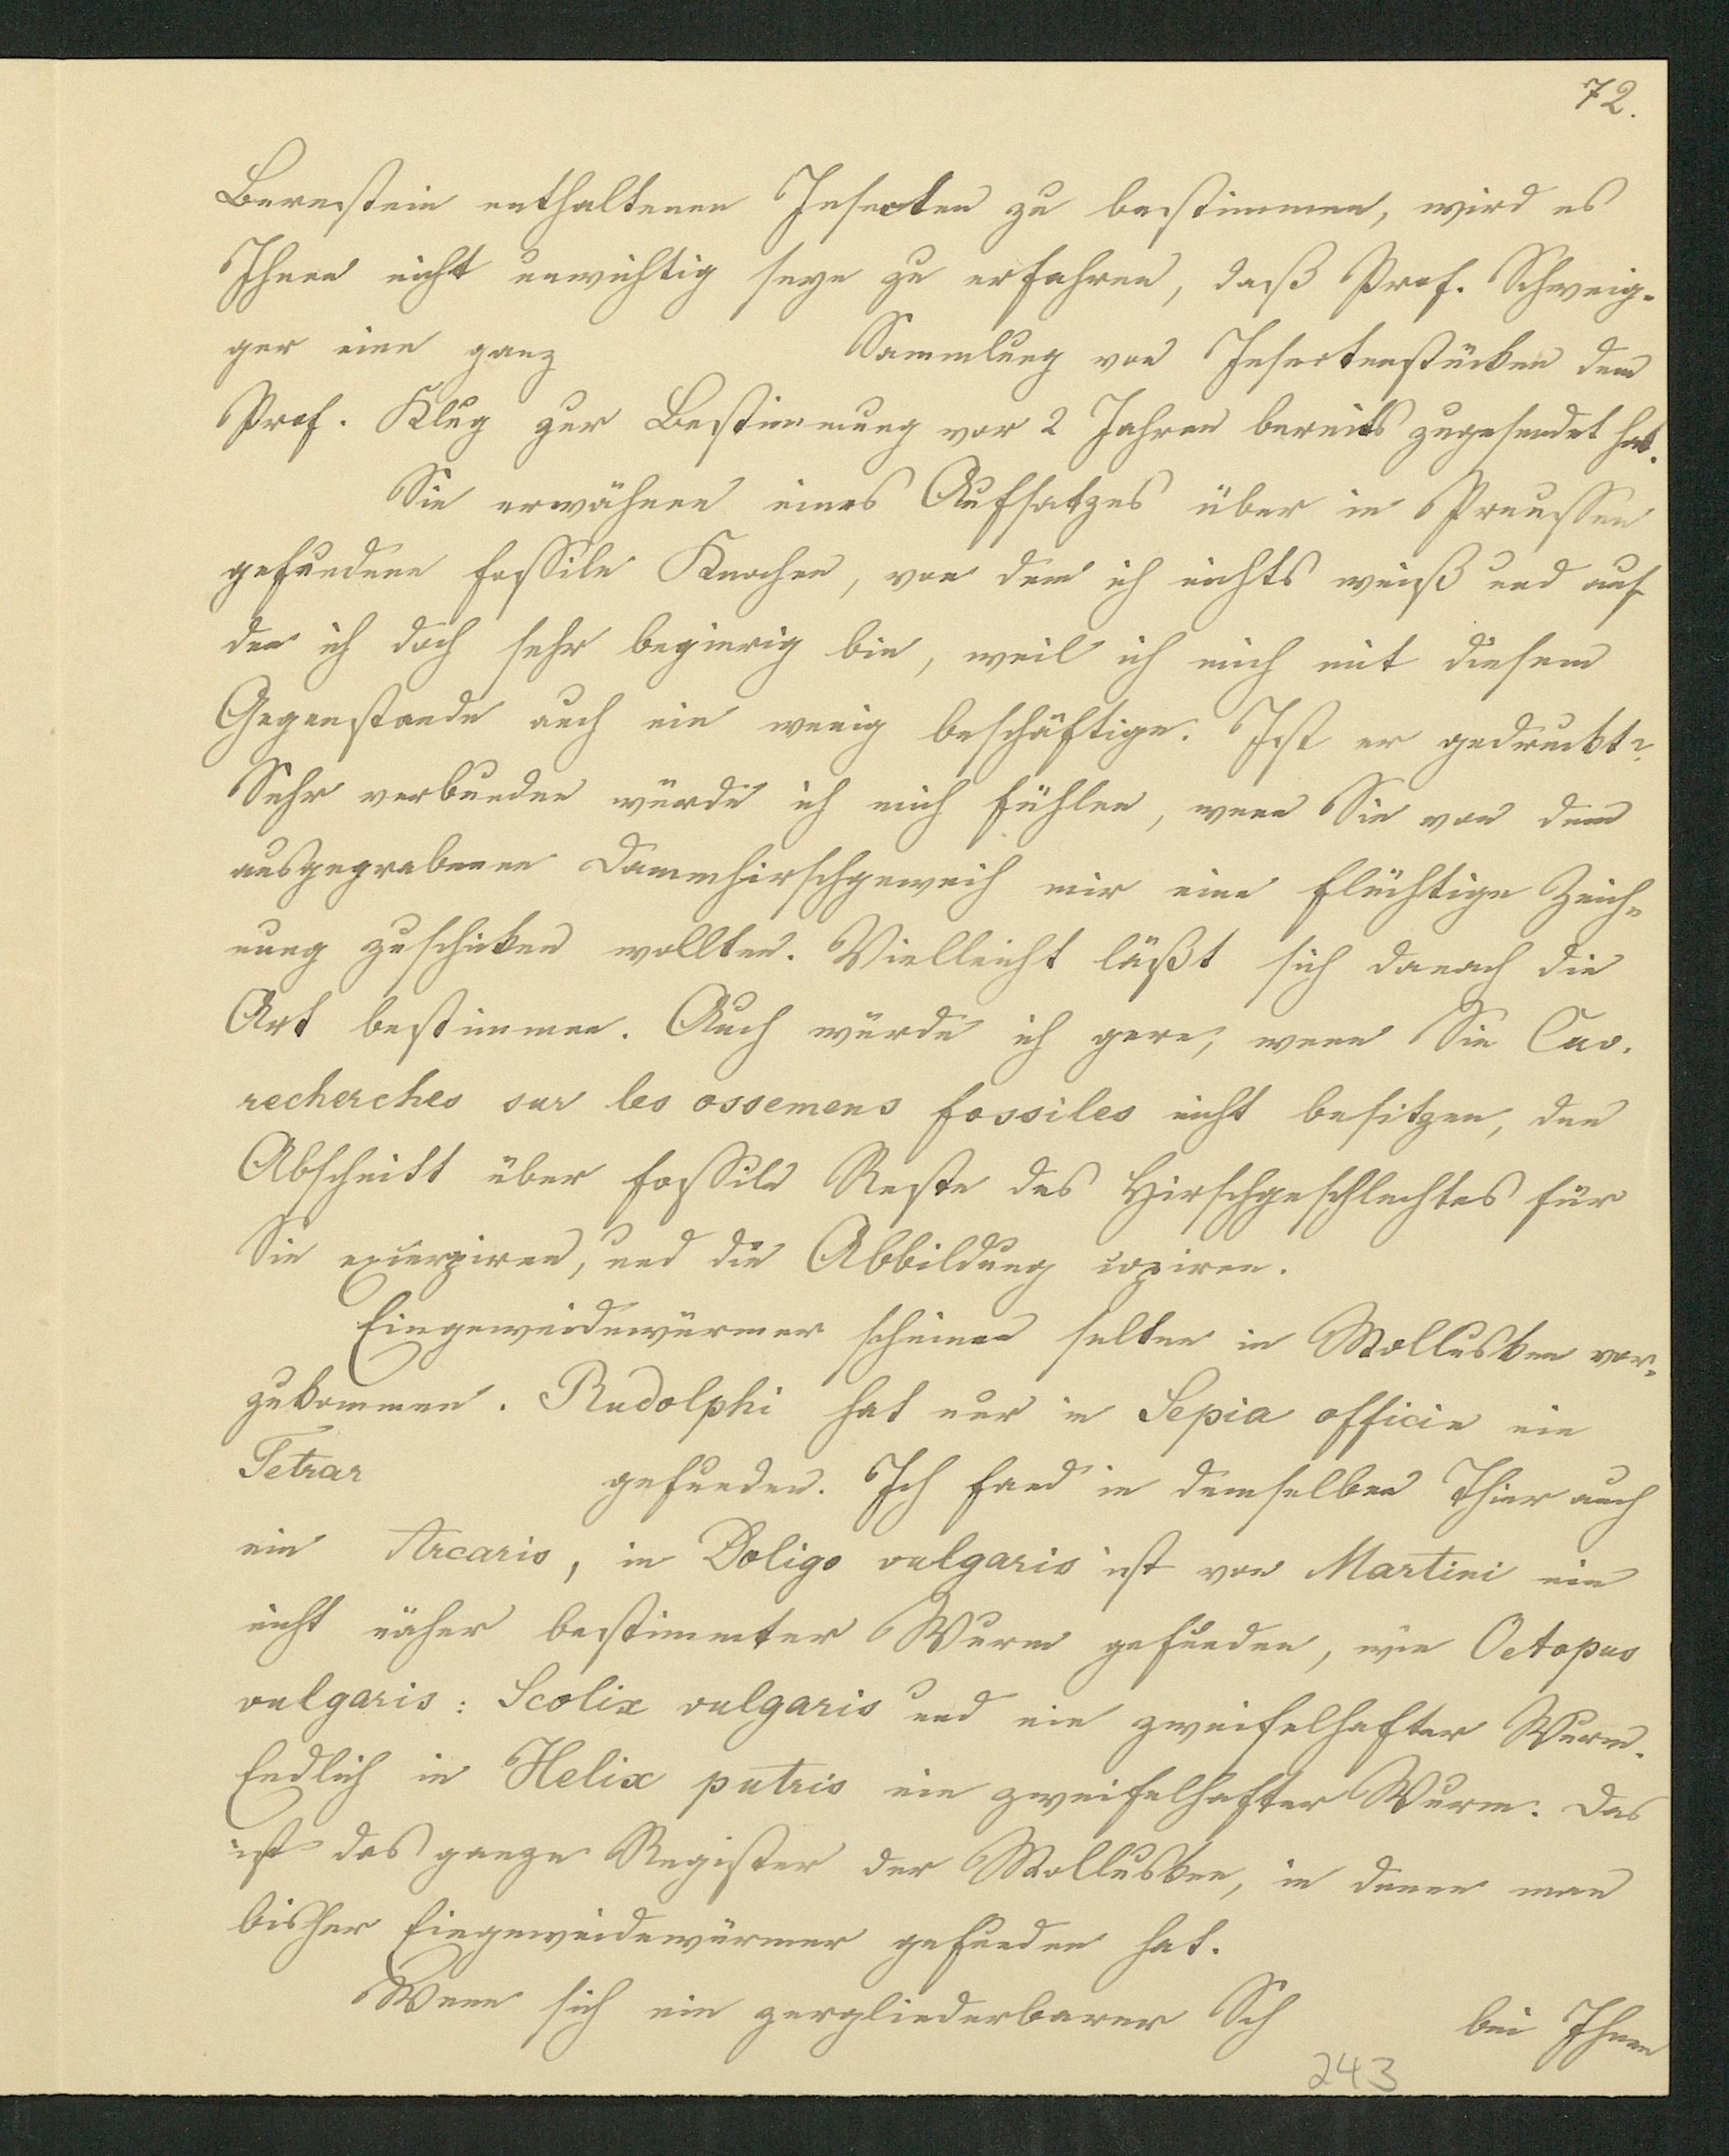 72.
Bernstein enthaltenen Insecten zu bestimmen, wird es
Ihnen nicht unwichtig seyn zu erfahren, daß Prof. Schweig-
ger eine ganz Sammlung von Insectenstücken dem
Prof. Klug zur Bestimmung vor 2 Jahren bereits zugesendet hat.
Sie erwähnen eines Aufsatzes über in Preussen
gefundene fossile Knochen, von dem ich nichts weiß und auf
den ich doch sehr begierig bin, weil ich mich mit diesem
Gegenstande auch ein wenig beschäftige. Ist er gedruckt?
Sehr verbunden würde ich mich fühlen, wenn Sie von dem
ausgegrabenen Dammhirschgeweih mir eine flüchtige Zeich-
nung zuschicken wollten. Vielleicht läßt sich danach die
Art bestimmen. Auch würde ich gern, wenn Sie Cuv.
recherches sur les ossemens fossiles nicht besitzen, den
Abschnitt über fossile Reste des Hirschgeschlechtes für
Sie excerpiren, und die Abbildung copiren.
Eingeweidewürmer scheinen selten in Mollusken vor-
zukommen. Rudolphi hat nur in Sepia officin ein
Tetrar gefunden. Ich fand in demselben Thier auch
ein Arcaris, in Doligo vulgaris ist von Martini ein
nicht näher bestimmter Wurm gefunden, wie Octopus
vulgaris: Scolix vulgaris und ein zweifelhafter Wurm.
Endlich in Helix putris ein zweifelhafter Wurm. Das
ist das ganze Register der Mollusken, in denen man
bisher Eingeweidewürmer gefunden hat.
Wenn sich ein zergliederbarer Sch bei Ihnen
243